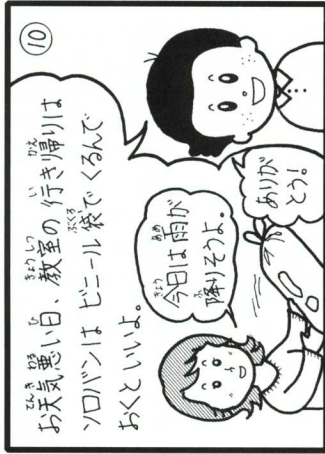 ⑩
お天気悪い日、教室の行き帰りは
ソロバンはビニール袋でくるんで
おくといいよ。
今日は雨が
降りそうよ。
ありが
とう!